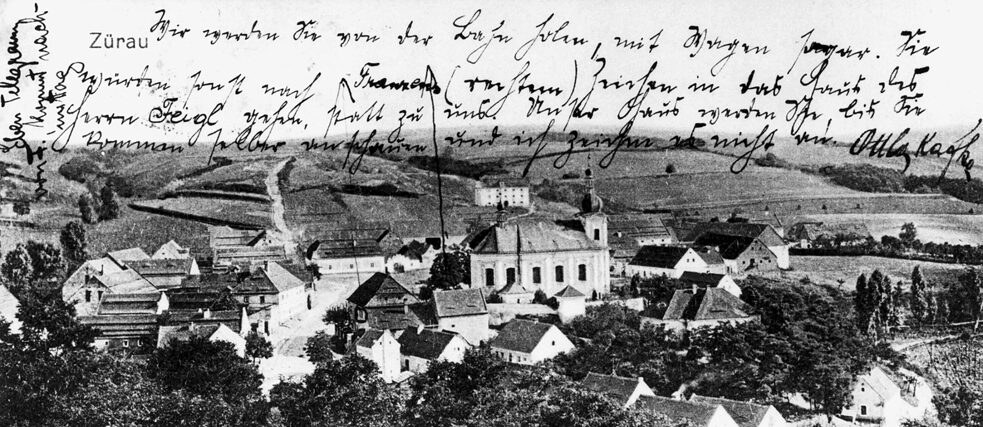 Zürau
Wir werden Sie von der Bahn holen, mit Wagen sogar. Sie
würden sonst nach Franzens (rechtem) Zeichen in das Haus des
Herrn Feigl gehen, statt zu uns. Unser Haus werden Sie, bis Sie
kommen selber anschauen und ich zeichne es nicht an. Ottla Kafka
Telegramm
kommt nach